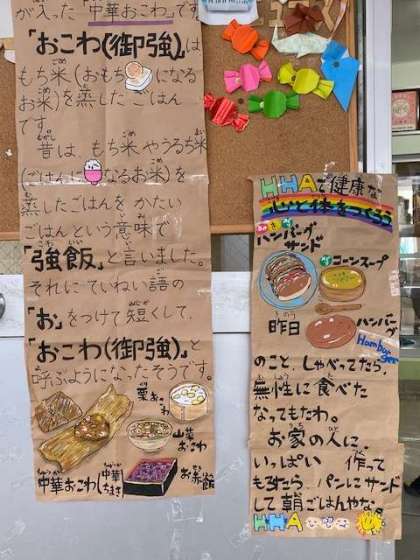 が入った「中華おこわ」です
「おこわ(御強)」は
もち米(おもちになる
お米)を蒸したごはん
です。
昔は、もち米やうるち米
(ごはんになるお米)を
蒸したごはんをかたい
ごはんという意味で
「強飯」と言いました。
それにていねい語の
「お」をつけて短くして、
「おこわ(御強)」と
呼ぶようになったそうです。
栗おこわ
山菜おこわ
お赤飯
中華おこわ
中華ちまき
HHAで健康な
心と体をつくろう
ハンバーグ
サンド
コーンスープ
昨日
ハンバーグ
Hamburger
のことしゃべってたら、
無性に食べた
なってもたわ。
お家の人に、
いっぱい作って
もろたら、パンにサンド
して朝ごはんやな。
HHA